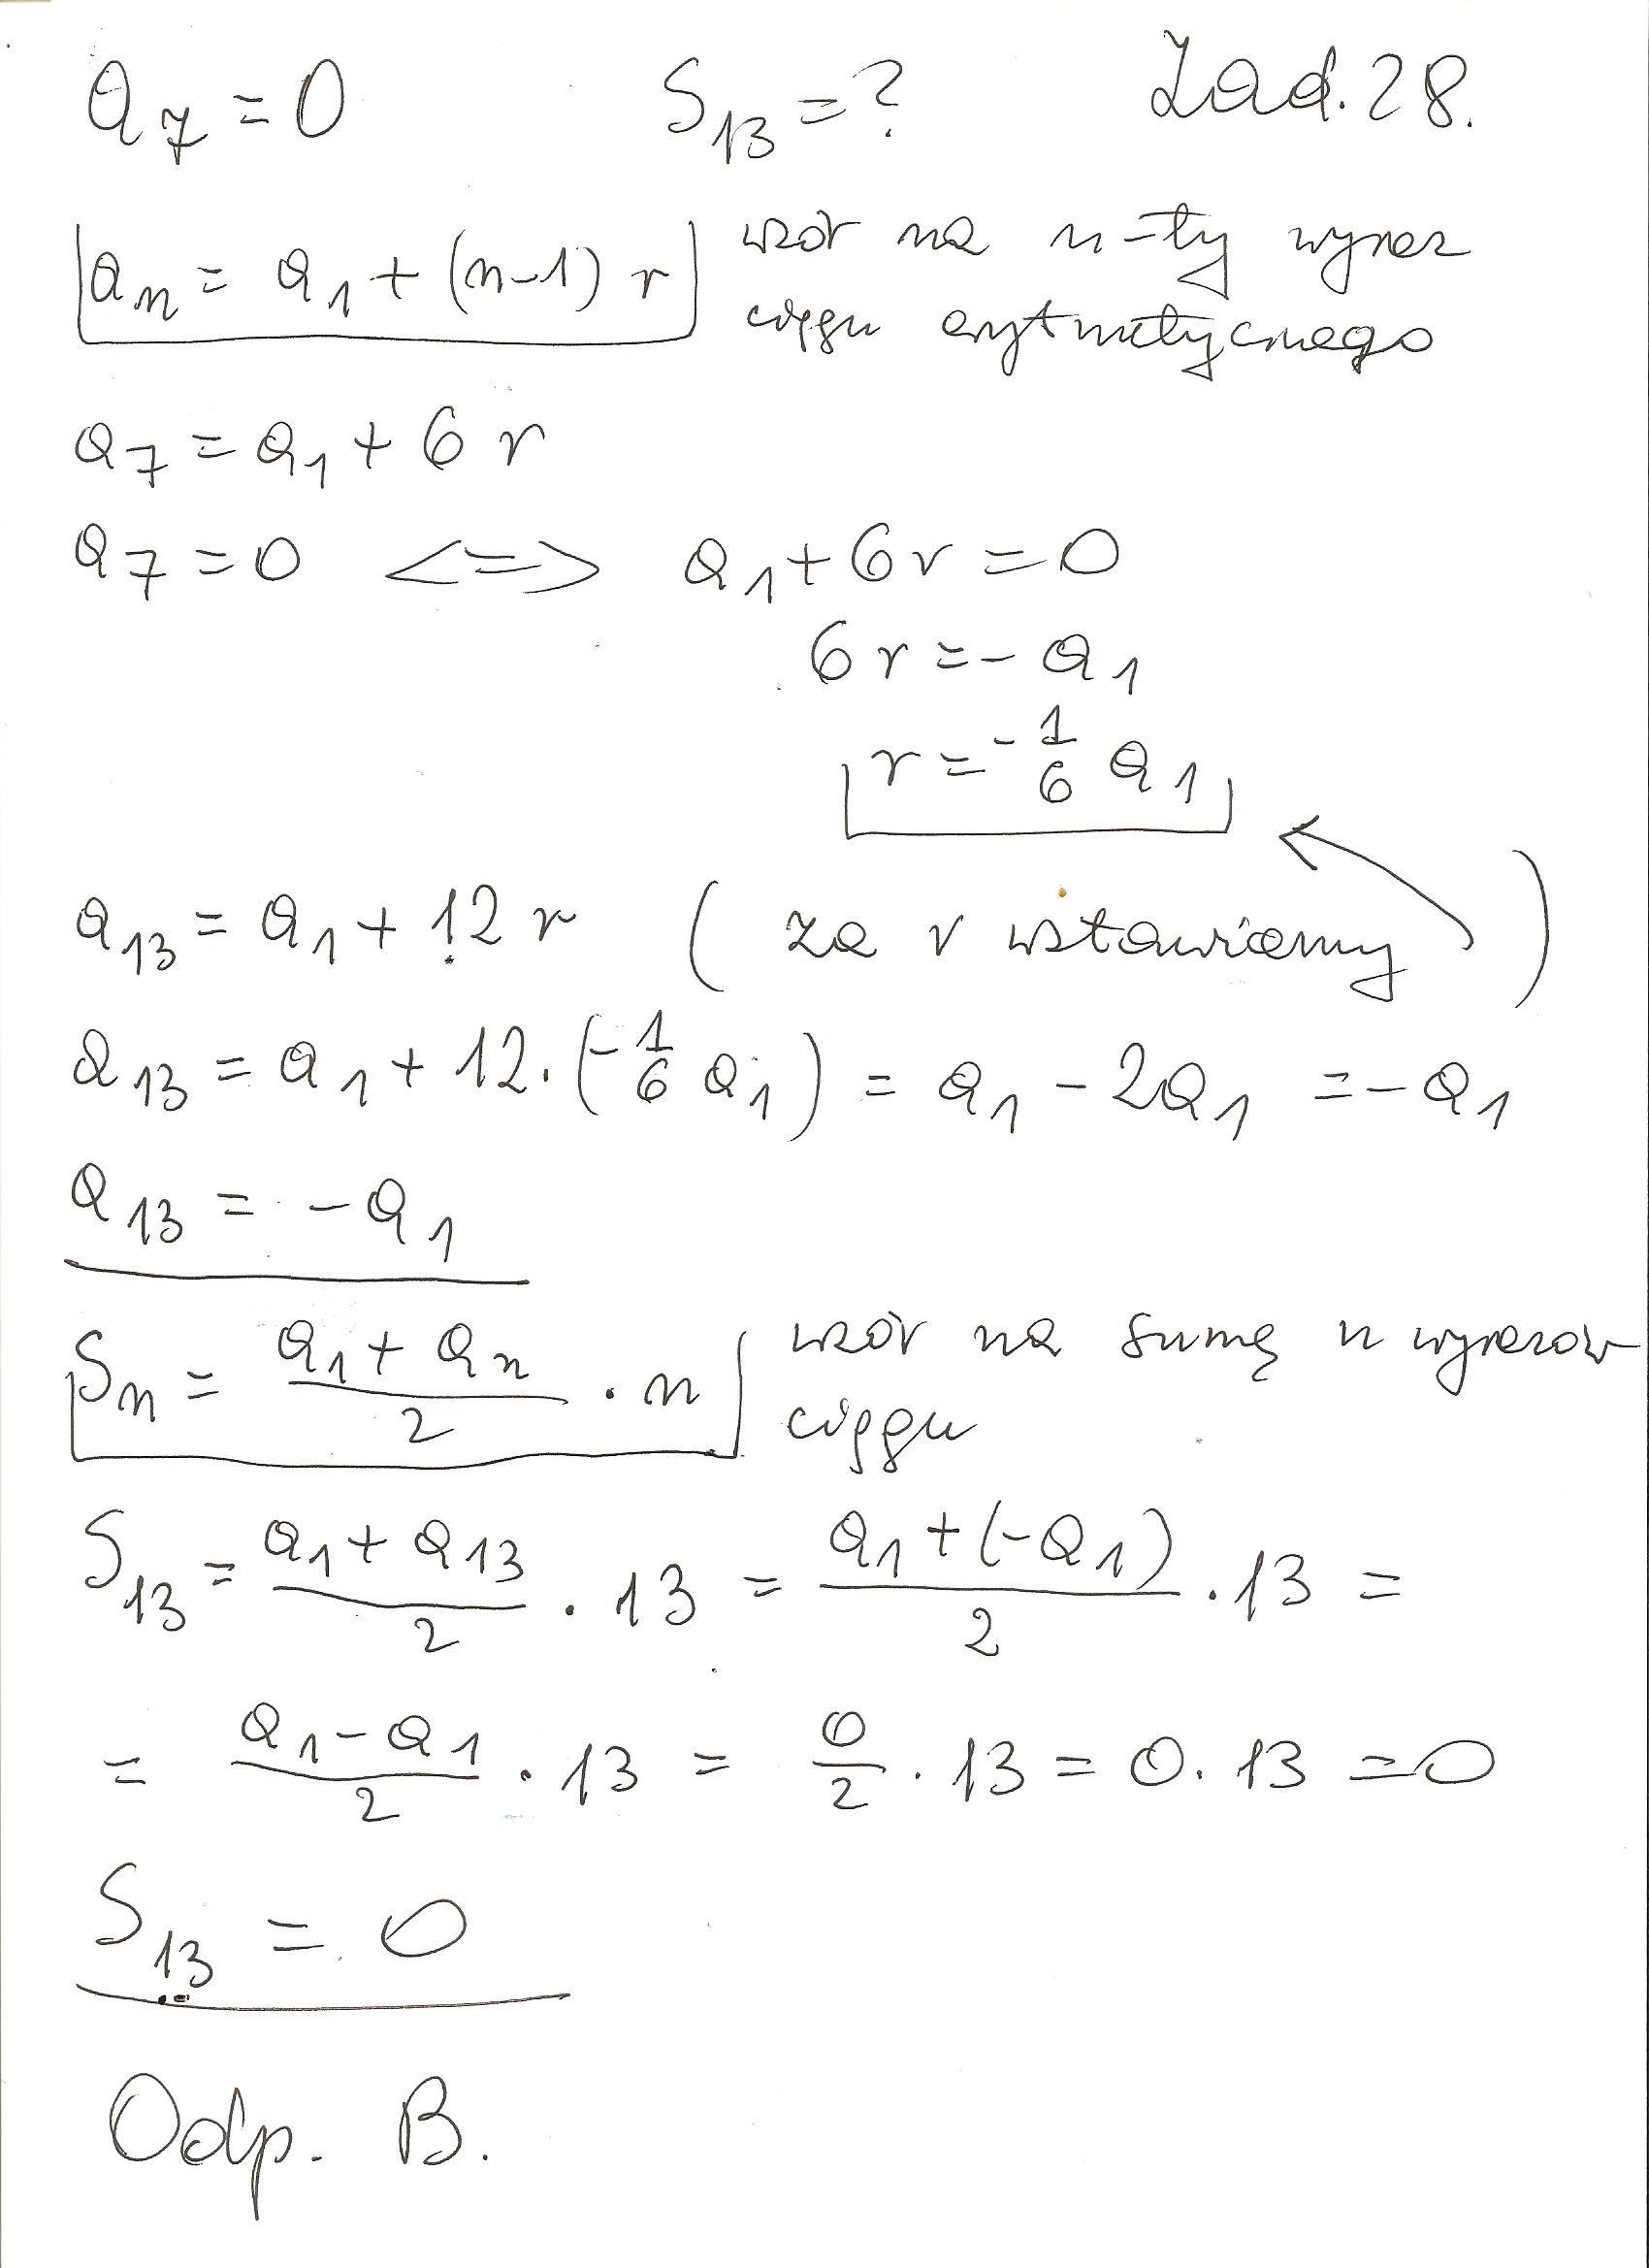 a₇ = 0 S₁₃ = ? Zad. 28.
aₙ = a₁ + (n-1) r wzór na n-ty wyraz
ciągu arytmetycznego
a₇ = a₁ + 6 r
a₇ = 0 <=> a₁ + 6r = 0
6r = - a₁
r = - 1/6 a₁
a₁₃ = a₁ + 12 r ( za r wstawiamy )
a₁₃ = a₁ + 12 · (- 1/6 a₁) = a₁ - 2a₁ = - a₁
a₁₃ = - a₁
Sₙ = (a₁ + aₙ)/2 · n wzór na sumę n wyrazów
ciągu
S₁₃ = (a₁ + a₁₃)/2 · 13 = (a₁ + (-a₁))/2 · 13 =
= (a₁ - a₁)/2 · 13 = 0/2 · 13 = 0 · 13 = 0
S₁₃ = 0
Odp. B.